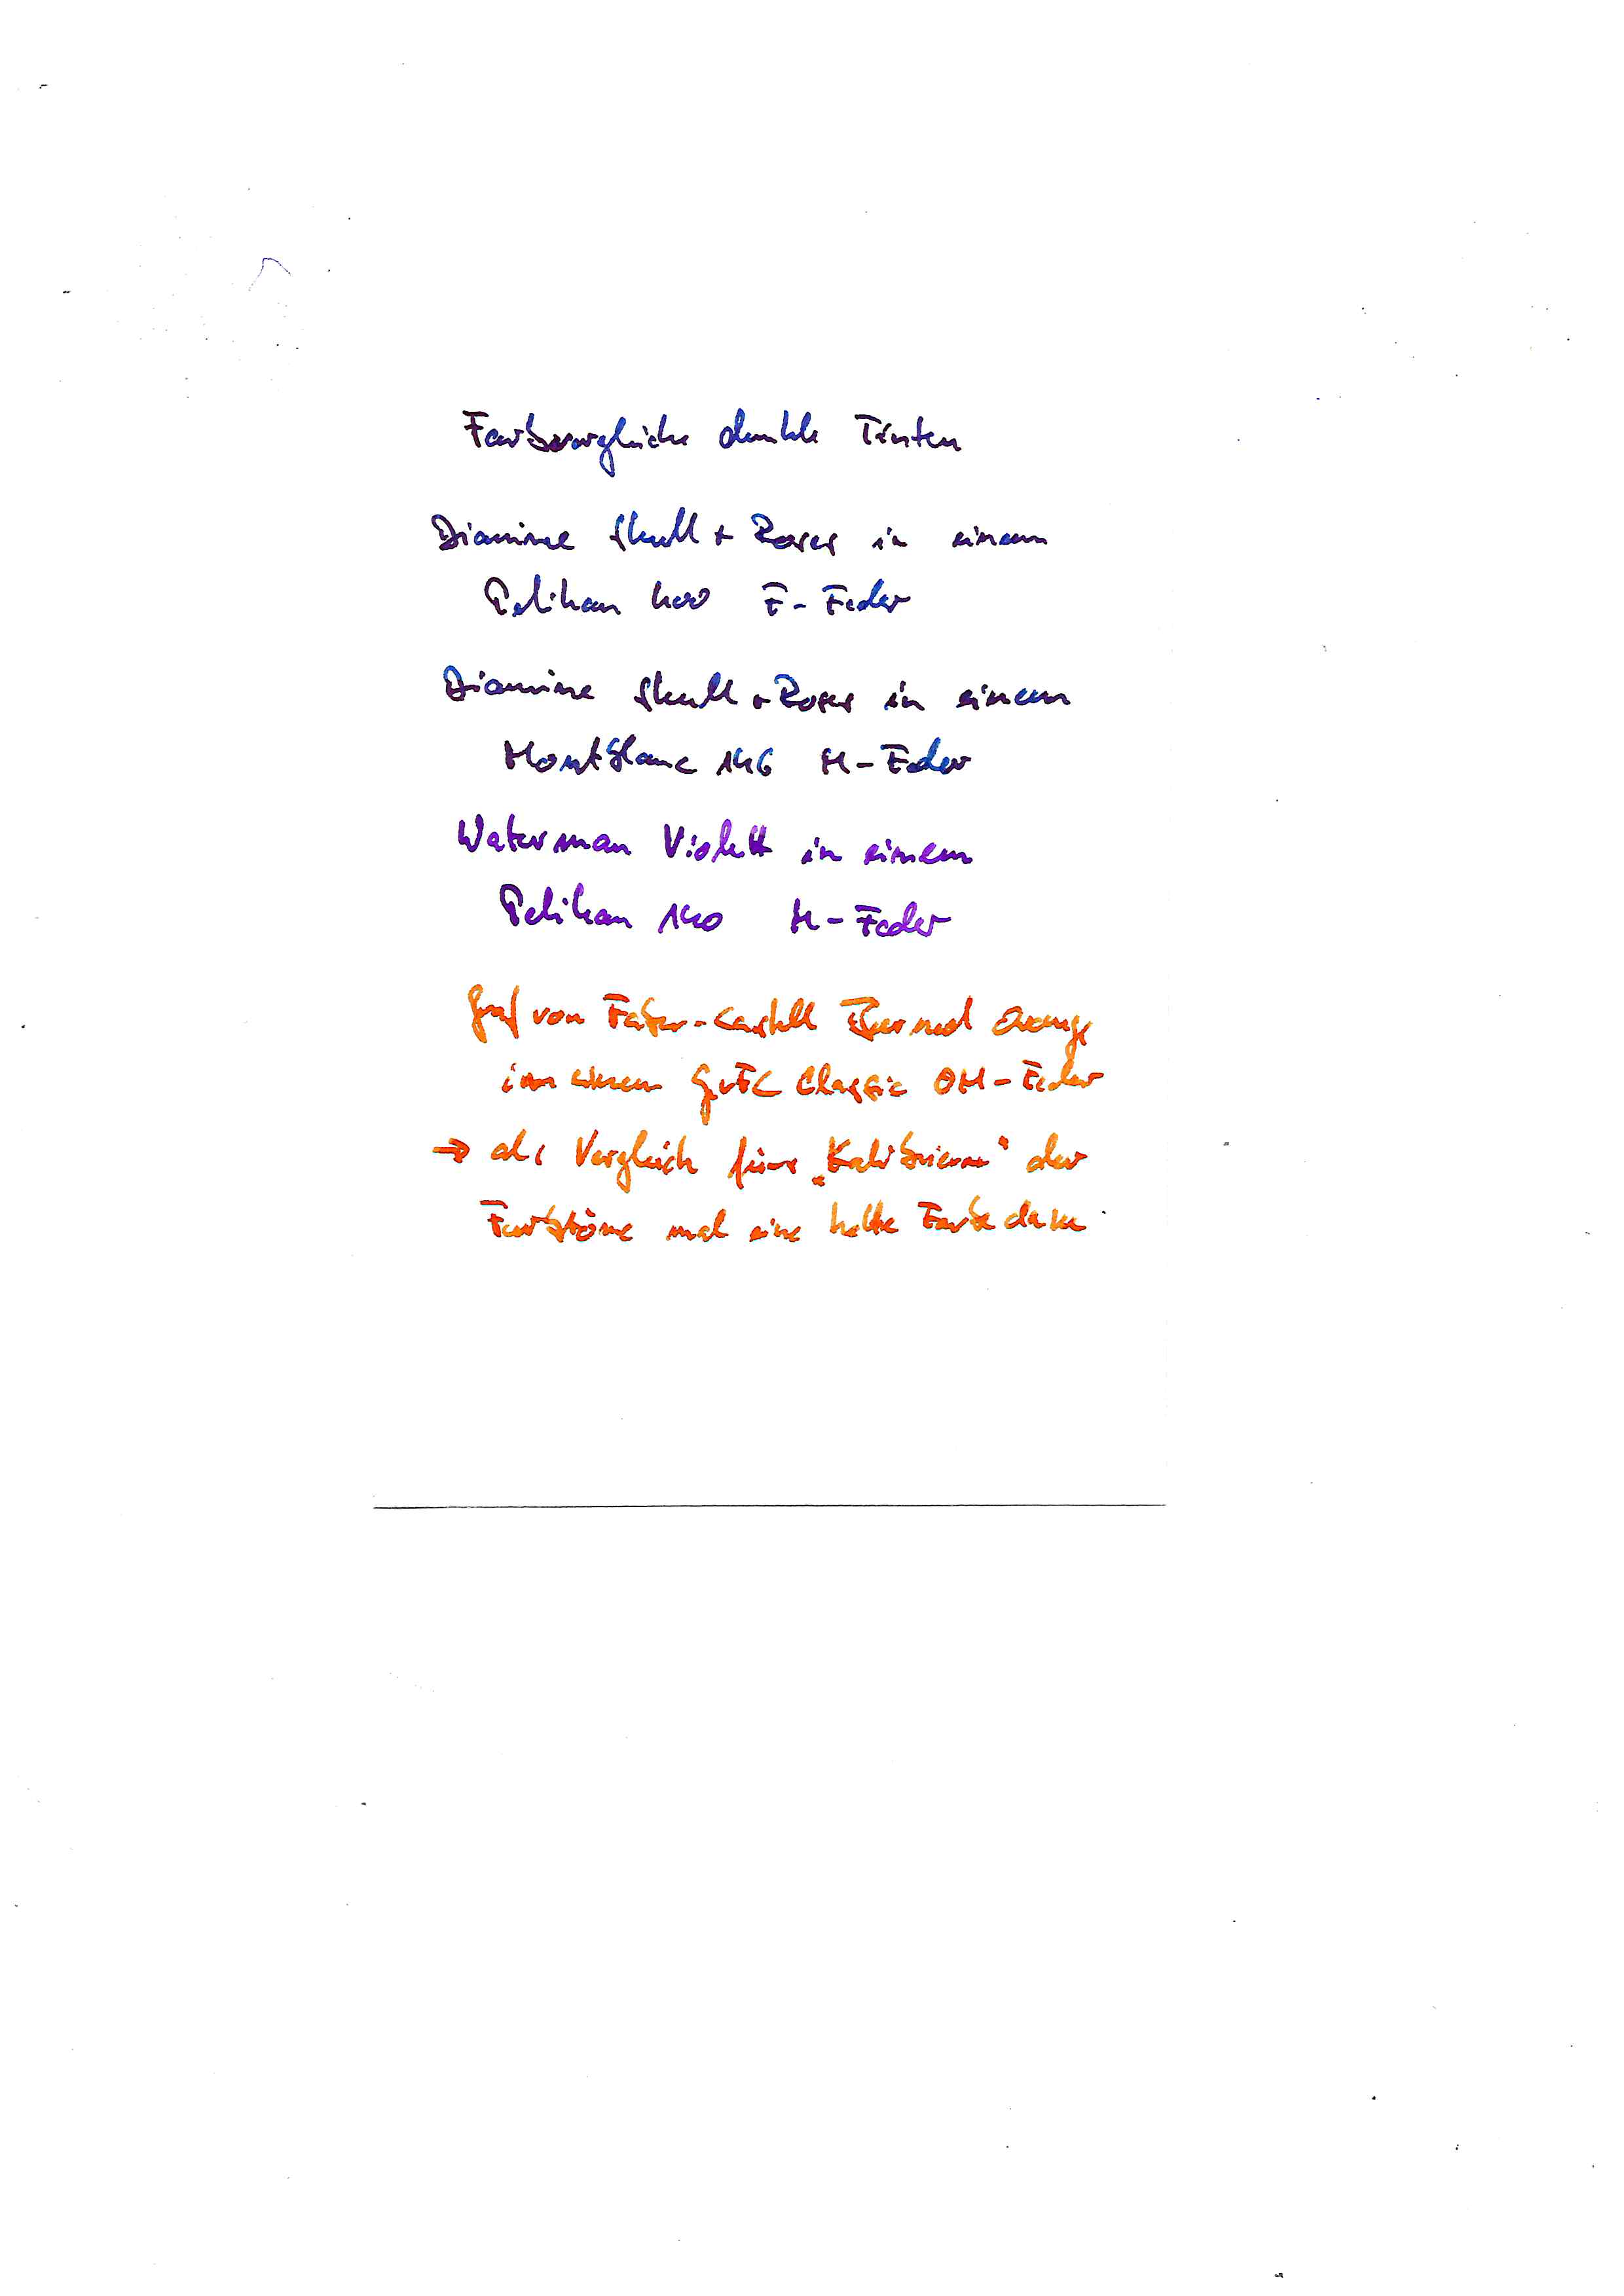 Farbvergleiche dunkle Tinten
Diamine Skull + Roses in einem
Pelikan 400 F-Feder
Diamine Skull + Roses in einem
Montblanc 146 M-Feder
Waterman Violett in einem
Pelikan 140 M-Feder
Graf von Faber-Castell Burned Orange
in einem GvFC Classic OM-Feder
→ als Vergleich fürs „Kalibrieren" der
Farbtöne mal eine helle Farbe dazu